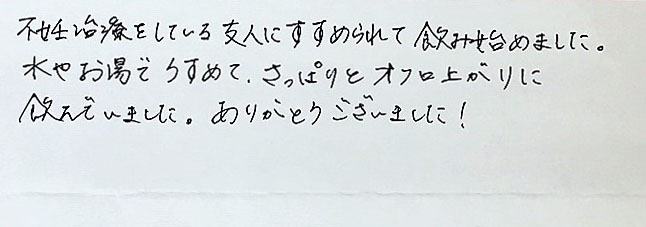 不妊治療をしている友人にすすめられて飲み始めました。
水やお湯でうすめて、さっぱりとオフロ上がりに
飲んでいました。ありがとうございました!